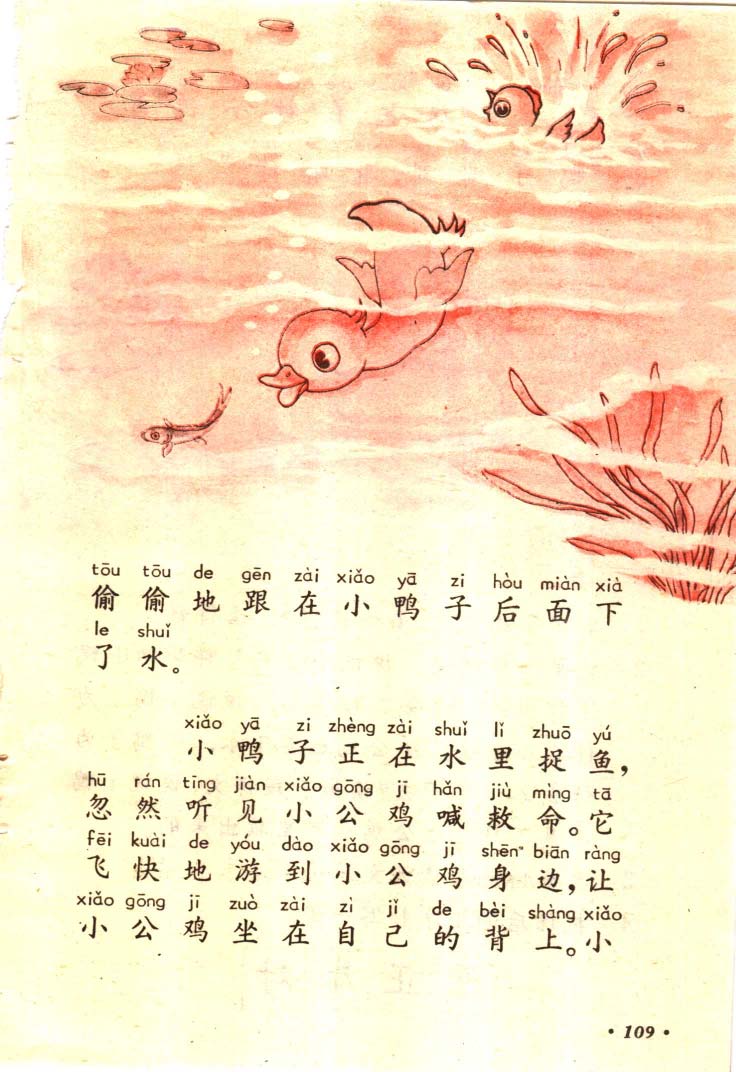 tōu tōu de gēn zài xiǎo yā zi hòu miàn xià
偷偷地跟在小鸭子后面下
le shuǐ
了水。
xiǎo yā zi zhèng zài shuǐ lǐ zhuō yú
小鸭子正在水里捉鱼，
hū rán tīng jiàn xiǎo gōng jī hǎn jiù mìng tā
忽然听见小公鸡喊救命。它
fēi kuài de yóu dào xiǎo gōng jī shēn biān ràng
飞快地游到小公鸡身边，让
xiǎo gōng jī zuò zài zì jǐ de bèi shàng xiǎo
小公鸡坐在自己的背上。小
·109·